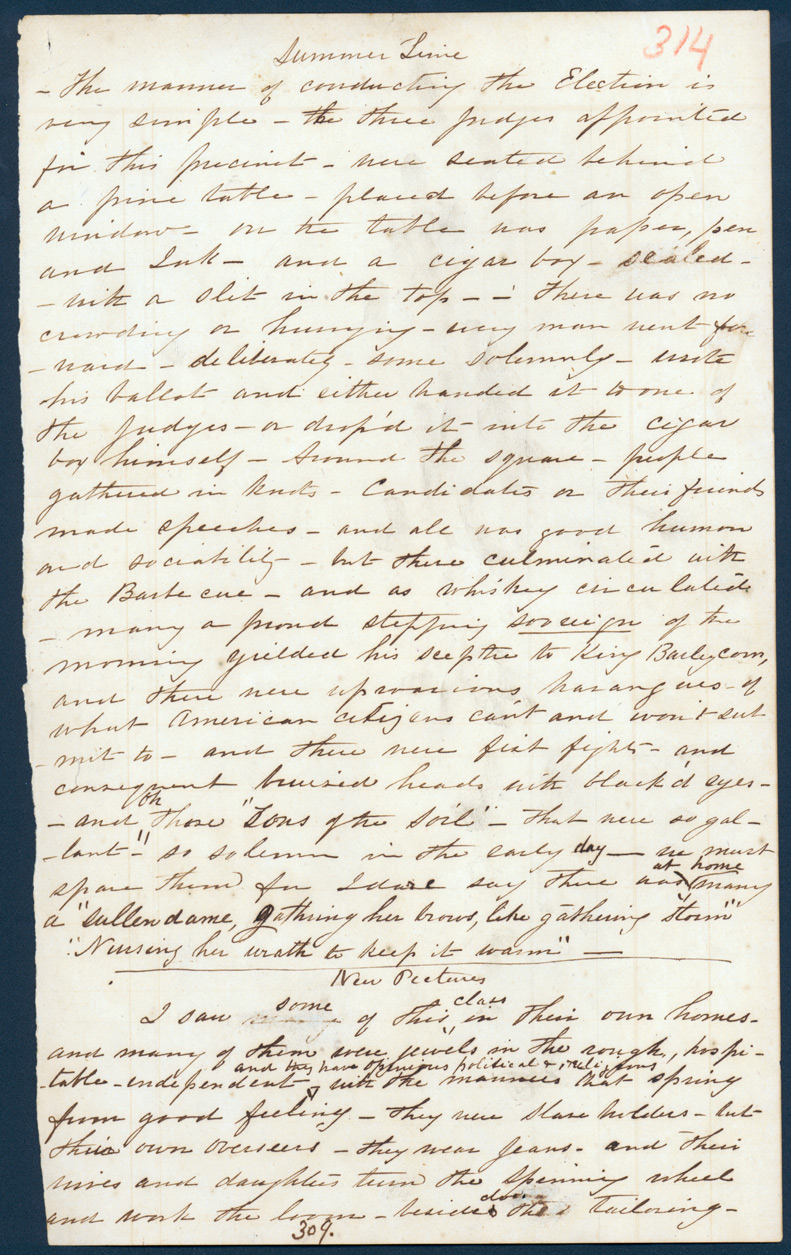 314
Summer Time
- The manner of conducting the Election is
very simple - the three Judges appointed
for this precinct - were seated behind
a pine table - placed before an open
window - on the table was paper, pen
and Ink - and a cigar box - sealed -
- with a slit in the top - - There was no
crowding or hurrying - every man went for
- ward - deliberately - some solemnly - wrote
his ballot and either handed it to one of
the Judges - or drop'd it into the cigar
box himself - Around the square - people
gathered in knots - Candidates or their friends
made speeches - and all was good humor
and sociability - but there culminated with
the Barbecue - and as whiskey circulated
- many a proud stepping sovreign of the
morning yielded his sceptre to King Barleycorn,
and there were uproarious harangues - of
what American citizens can't and won't sub
- mit to - and there were fist fights - and
consequent bruised heads with black'd eyes -
- and oh "those "Sons of the Soil" - that were so gal -
- lant - " so solemn in the early day - we must
spare them for I dare say there was at home many
a "sullen dame, gathring her brows, like gathering storm"
"Nursing her wrath to keep it warm" -
New Pictures
I saw some of this a class in their own homes -
and many of them were jewels in the rough, hospi -
- table - independent and they have opinions political & religious - with the manners that spring
from good feeling - they were slave holders - but
their own overseers - they wear Jeans - and their
wives and daughters turn the spinning wheel
and work the loom - besides the tailoring -
309.